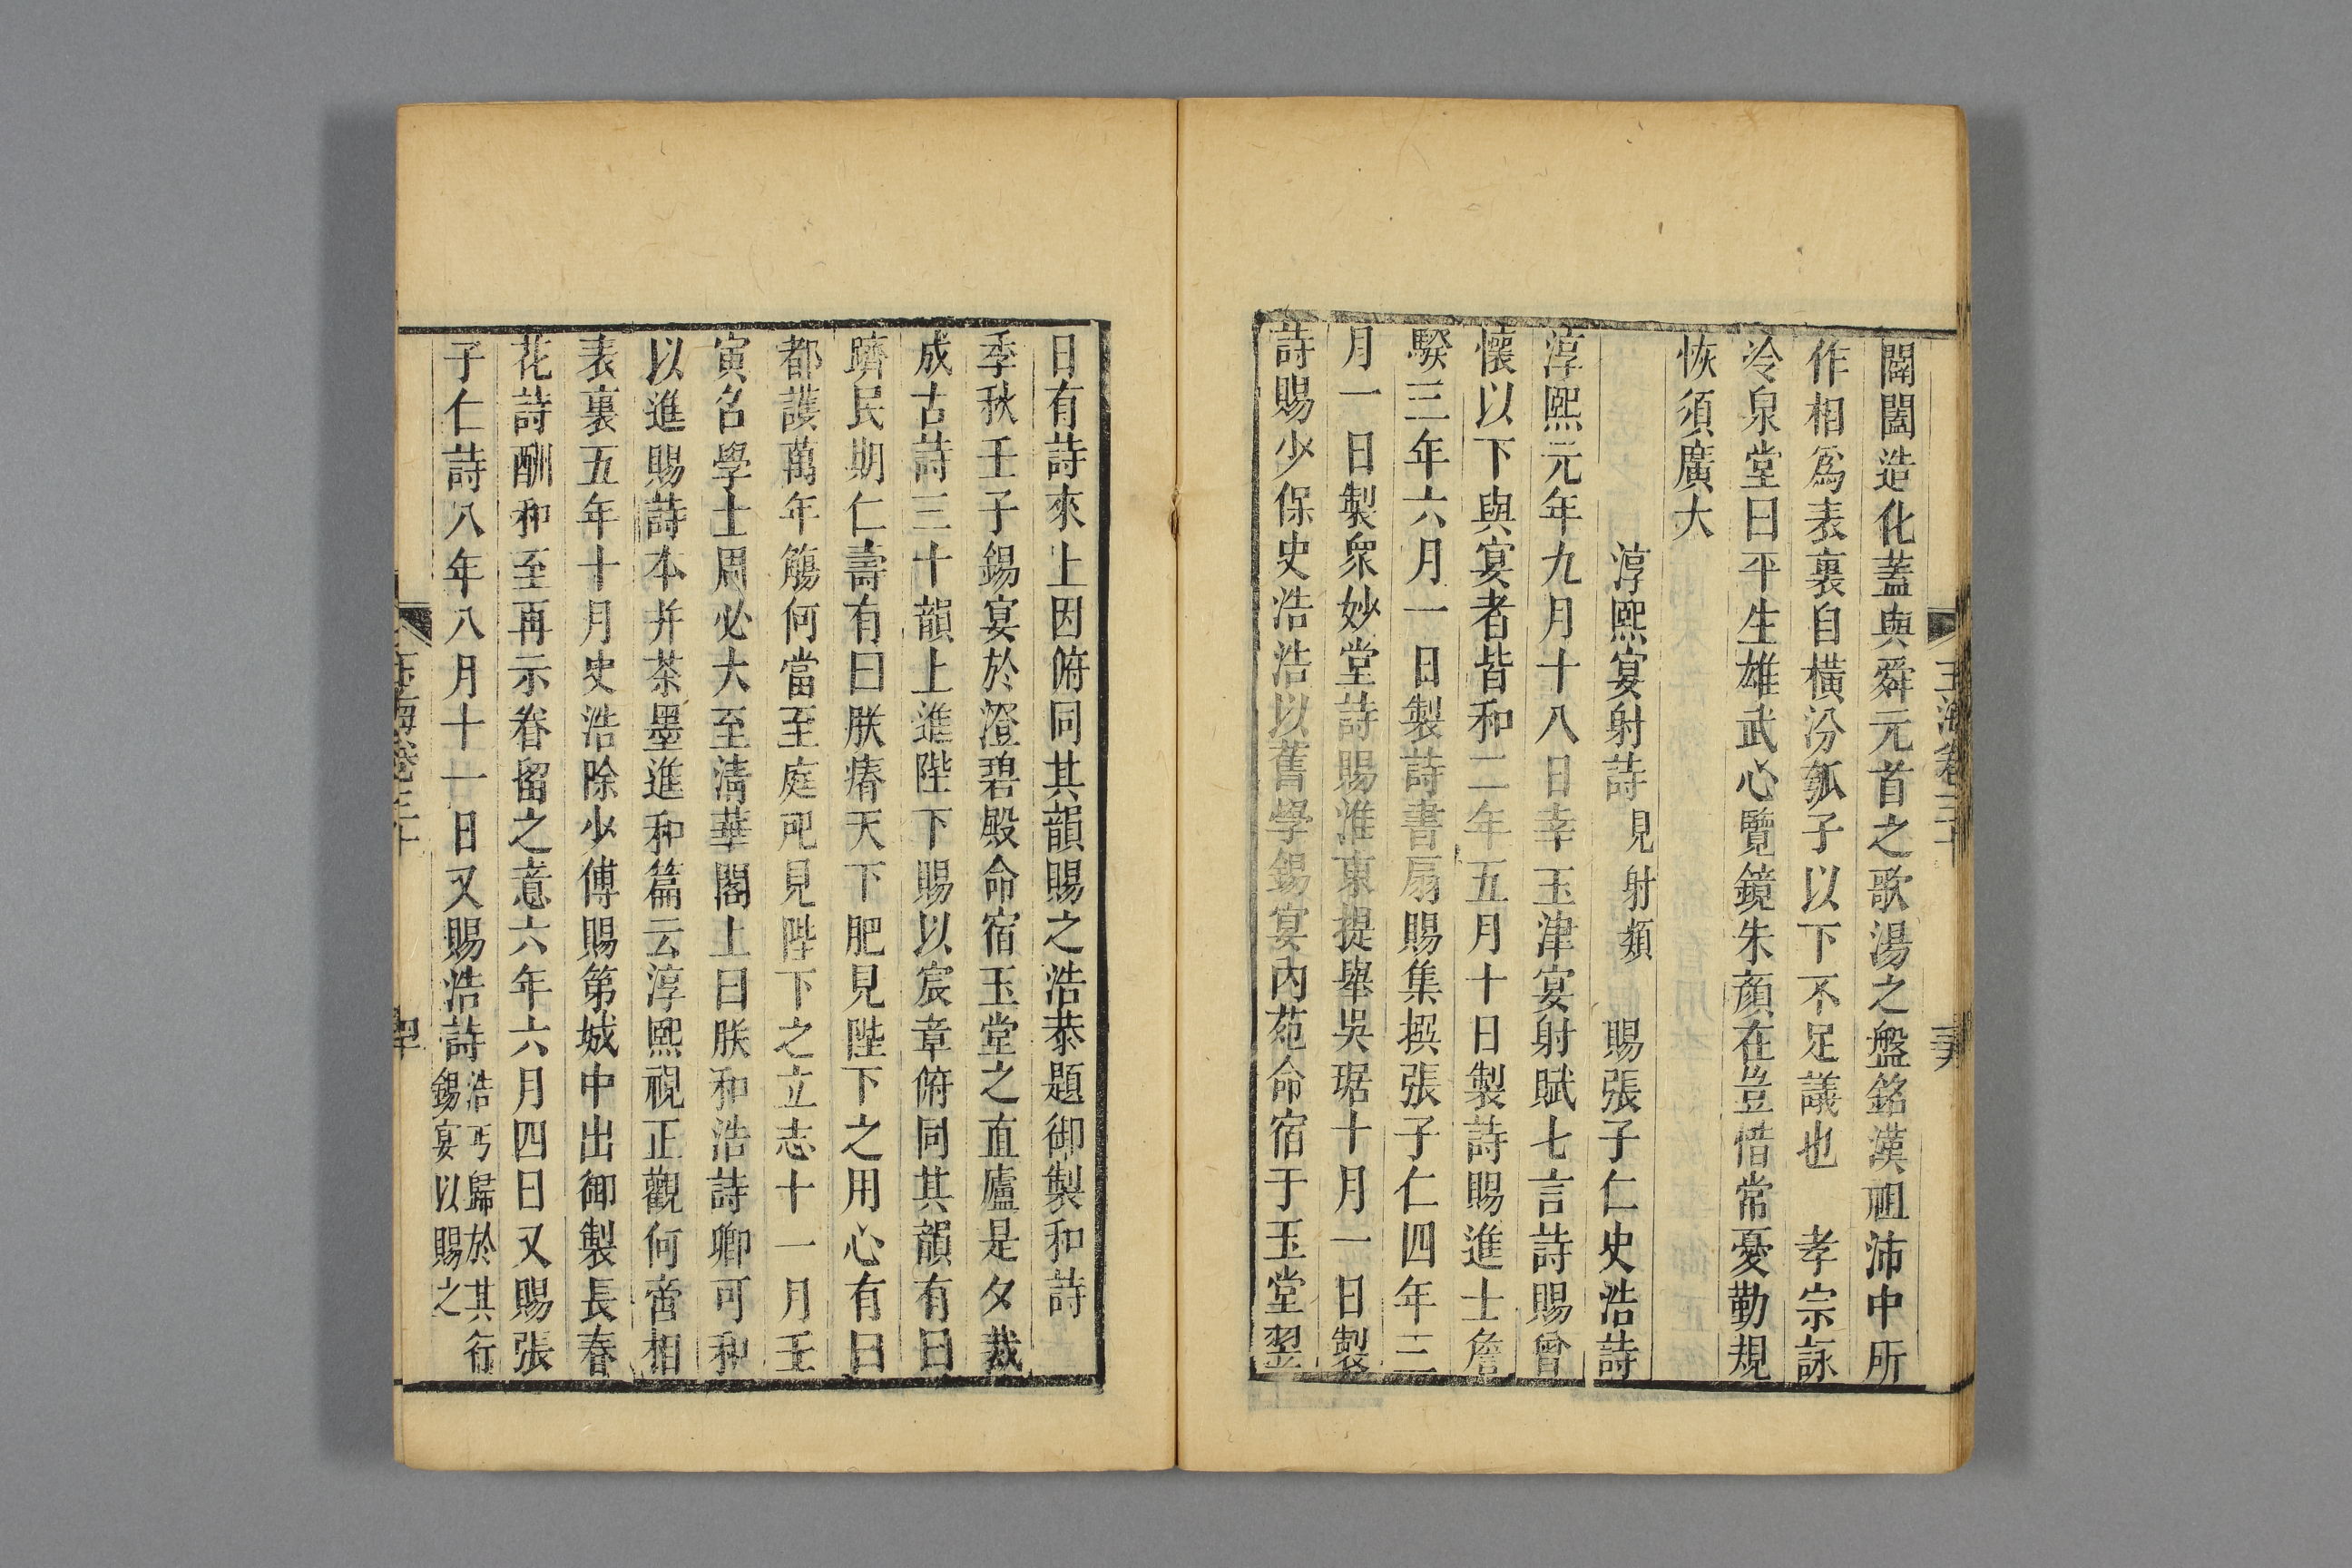 闔闢造化蓋與舜元首之歌湯之盤銘漢祖沛中所
作相爲表裏自橫汾瓠子以下不足議也　孝宗詠
冷泉堂曰平生雄武心覽鏡朱顏在豈惜常憂勤規
恢須廣大
淳熙宴射詩見射類　賜張子仁史浩詩
淳熙元年九月十八日幸玉津宴射賦七言詩賜曾
懷以下與宴者皆和二年五月十日製詩賜進士詹
騤三年六月一日製詩書扇賜集撰張子仁四年三
月一日製衆妙堂詩賜淮東提舉吳琚十月一日製
詩賜少保史浩浩以舊學錫宴內苑命宿于玉堂翌
日有詩來上因俯同其韻賜之浩恭題御製和詩
季秋壬子錫宴於澄碧殿命宿玉堂之直廬是夕裁
成古詩三十韻上進陛下賜以宸章俯同其韻有曰
躋民期仁壽有曰朕瘠天下肥見陛下之用心有曰
都護萬年觴何當至庭戺見陛下之立志十一月壬
寅名學士周必大至淸華閣上曰朕和浩詩卿可和
以進賜詩本并茶墨進和篇云淳熙視正觀何啻相
表裏五年十月史浩除少傅賜第城中出御製長春
花詩酬和至再示眷留之意六年六月四日又賜張
子仁詩八年八月十一日又賜浩詩浩丐歸於其行
錫宴以賜之
玉海卷三十